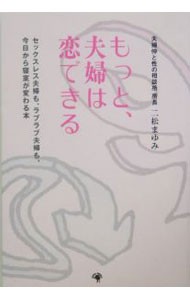 夫婦仲と性の相談所 所長 二松まゆみ
もっと、
夫婦は
恋できる
セックスレス夫婦も、ラブラブ夫婦も、
今日から寝室が変わる本